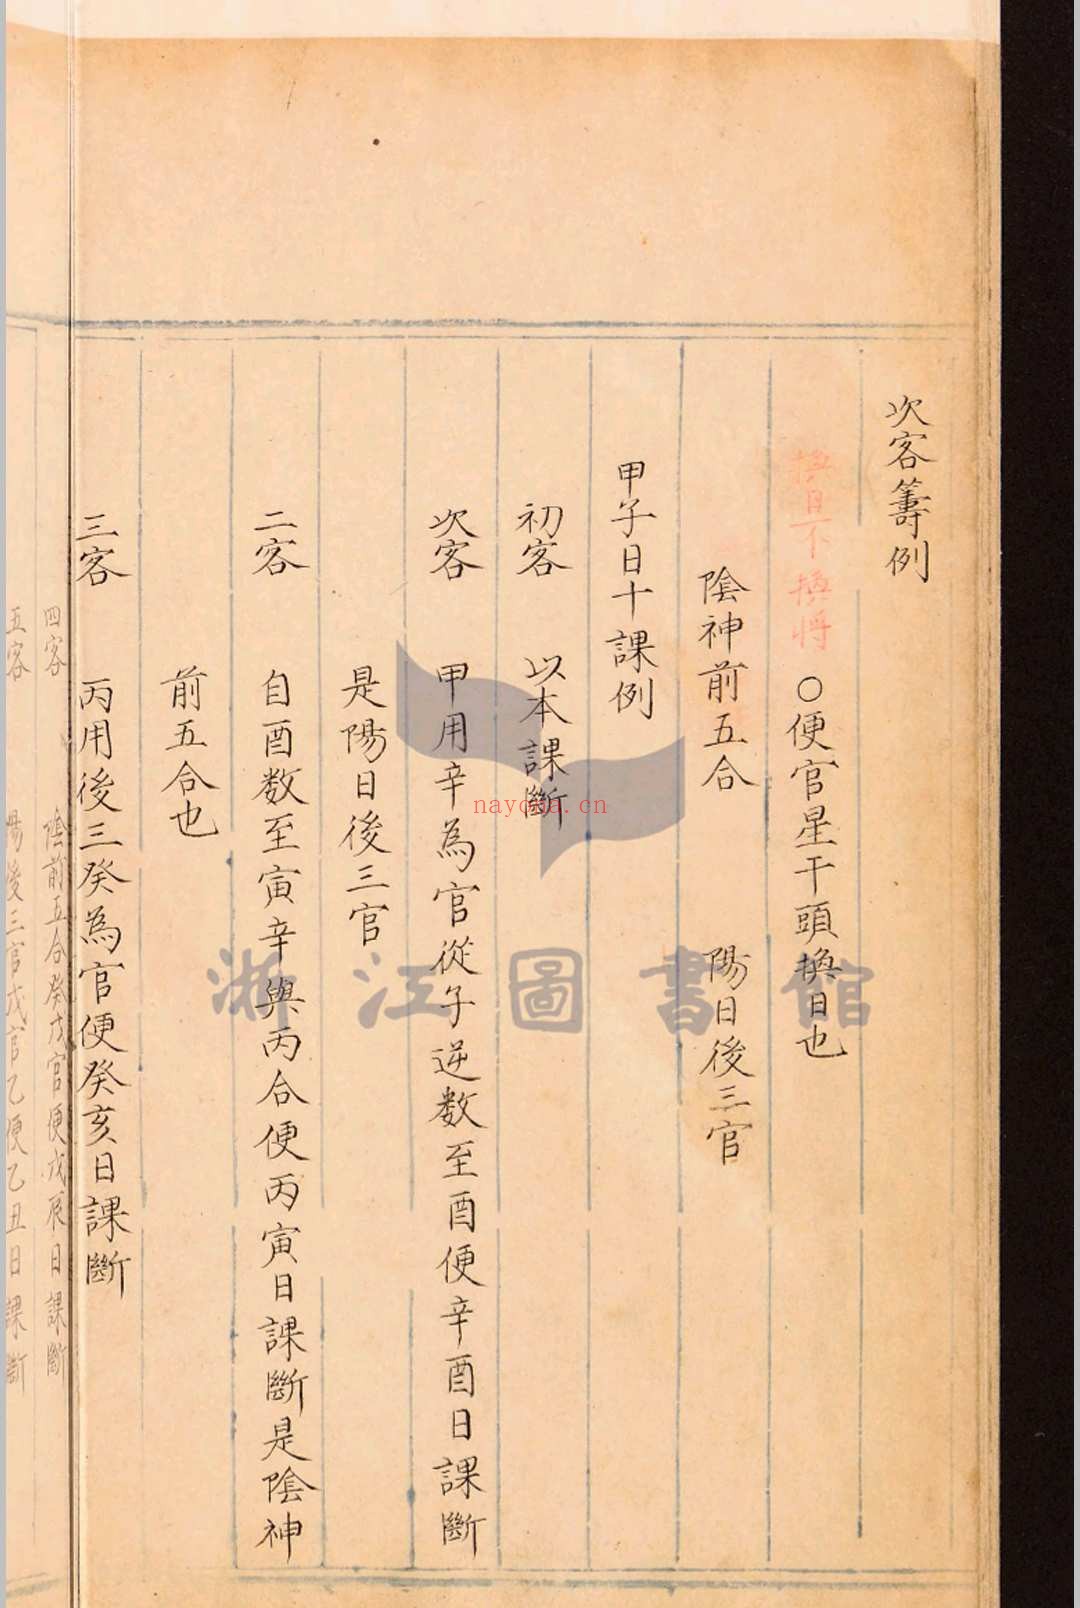 次客籌例
換日不換將 〇便官星干頭換日也
陰神前五合 陽日後三官
甲子日十課例
初客 以本課斷
次客 甲用辛為官從子逆数至酉便辛酉日課斷
是陽日後三官
二客 自酉数至寅辛與丙合便丙寅日課斷是陰神
前五合也
三客 丙用後三癸為官便癸亥日課斷
四客 陰前五合癸戊官便戊辰日課斷
五客 陽後三官戊官乙便乙丑日課斷
浙江圖書館
nayona.cn